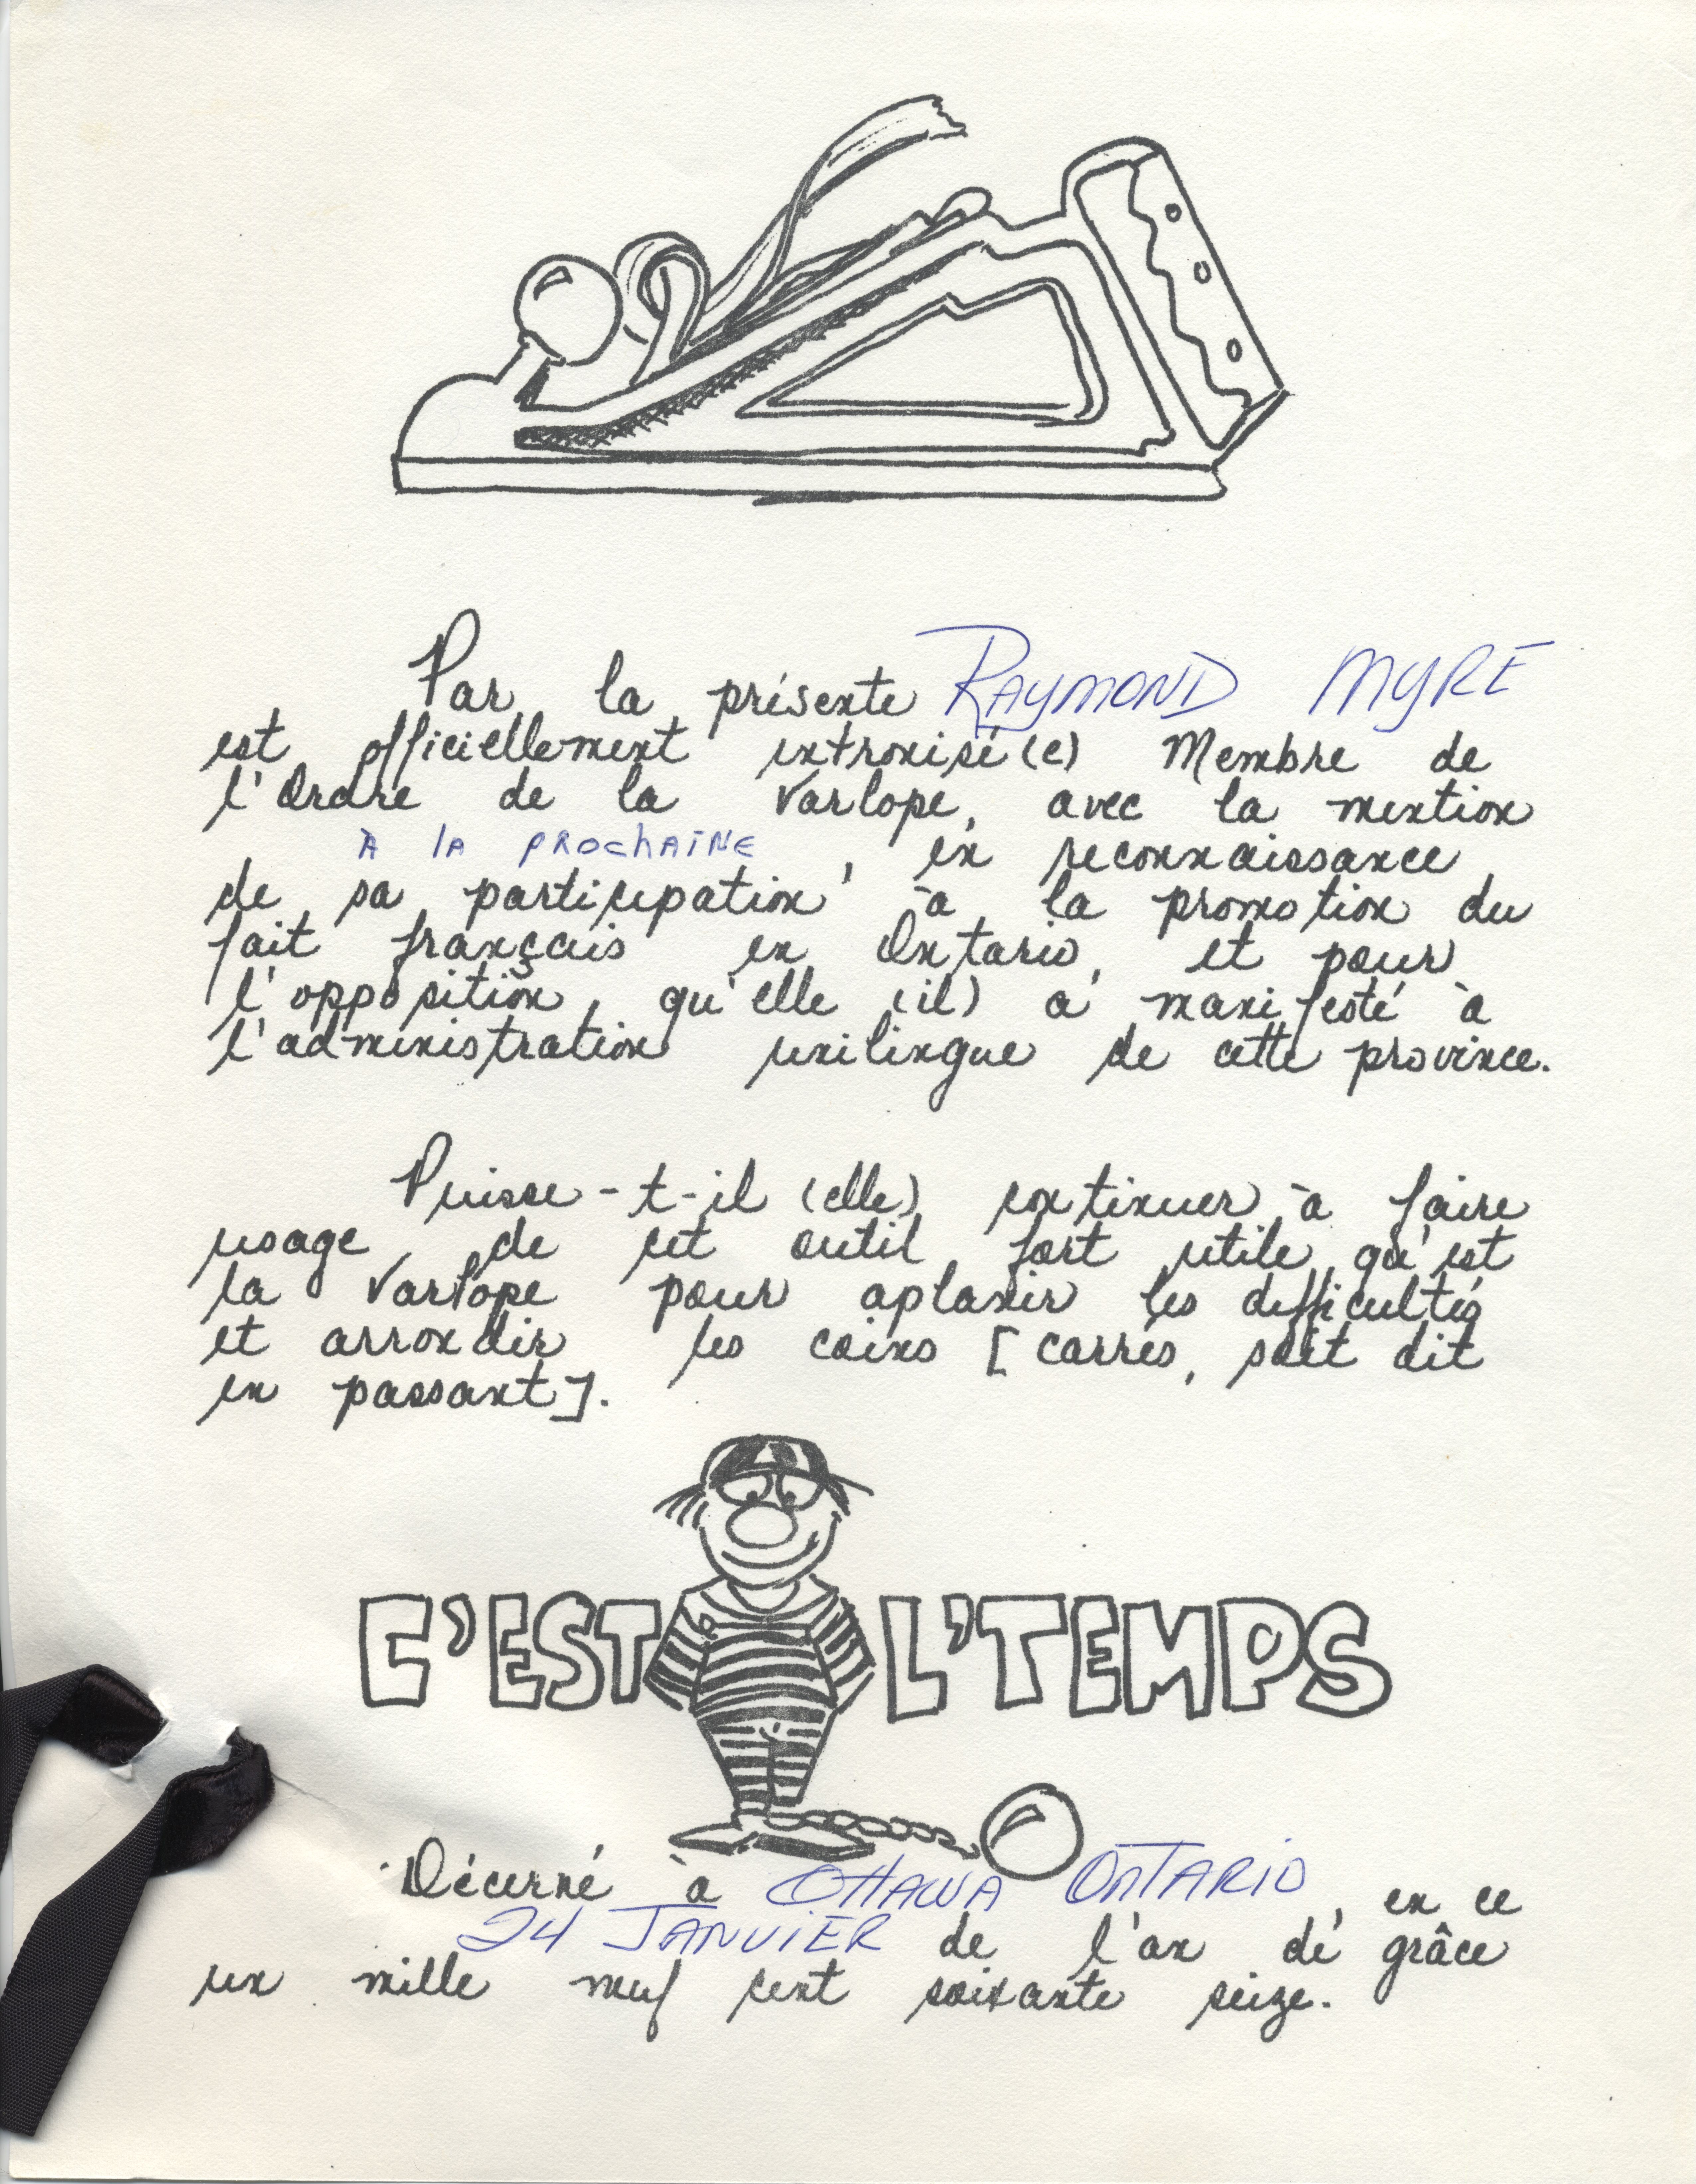 Par la présente RAYMOND MYRE
est officiellement intronisé(e) Membre de
l'Ordre de la Varlope, avec la mention
À LA PROCHAINE, en reconnaissance
de sa participation à la promotion du
fait français en Ontario, et pour
l'opposition, qu'elle (il) a manifesté à
l'administration unilingue de cette province.
Puisse-t-il (elle) continuer à faire
usage de cet outil fort utile qu'est
la Varlope pour aplanir les difficultés
et arrondir les coins [carrés, soit dit
en passant].
C'EST L'TEMPS
Décerné à OTTAWA ONTARIO, en ce
24 JANVIER de l'an de grâce
un mille neuf cent soixante seize.